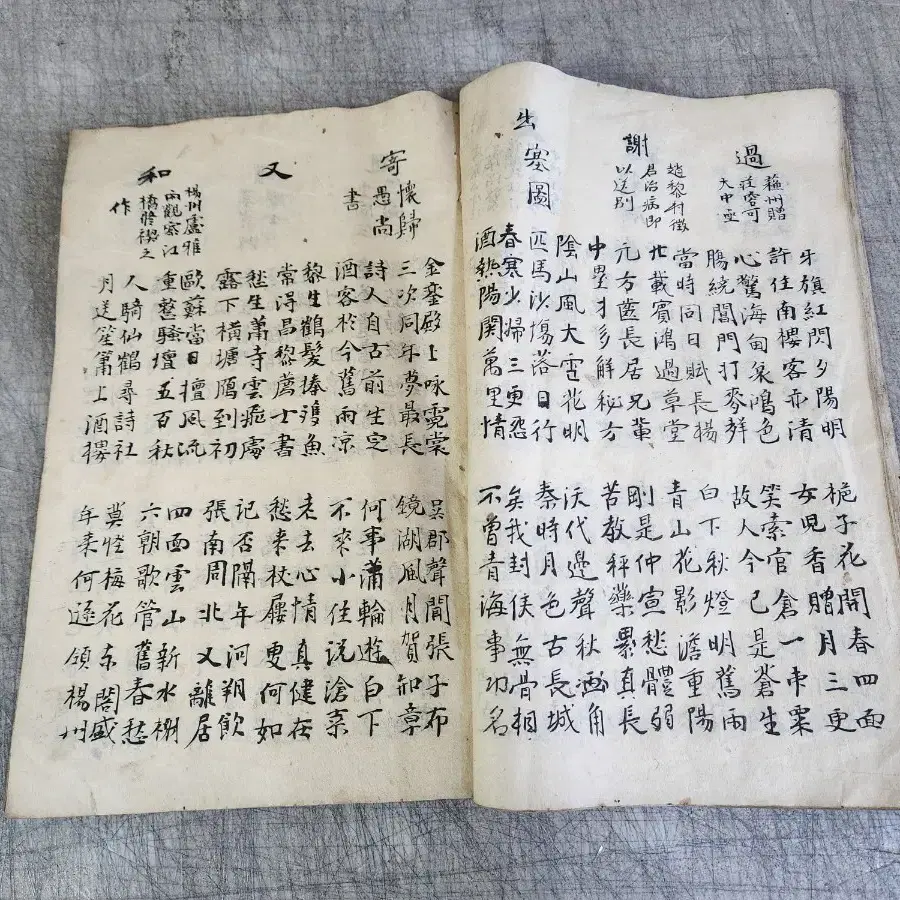 過
蘇州贈
莊容可
大中丞
牙旗紅閃夕陽明 梔子花開春四面
許住南樓客亦清 女兒香贈月三更
心驚海甸哀鴻色 笑索官倉一串粟
腸繞閶門打麥聲 故人今已是蒼生
謝
趙黎村徵
君治病即
以送別
當時同日賦長楊 白下秋燈明舊雨
廿載賓鴻過草堂 青山花影澹重陽
元方匳長居兄輩 剛是仲宣愁體弱
中壘才多解秘方 苦教秤藥累真長
出塞圖
陰山風大雪花明 漢代邊聲秋画角
匹馬沙場落日行 秦時月色古長城
春寒少婦三更怨 矣我封侯無骨相
酒熱陽關萬里情 不曾青海事功名
寄
懷歸
愚尚
書
金鑾殿上咏霓裳 吳郡聲聞張子布
三次同年夢最長 鏡湖風月賀知章
詩人自古前生定 何事蒲輪遊白下
酒客於今舊雨凉 不來小住說滄桒
又
黎生鶴髮捧雙魚 老去心情真健在
常得昌黎薦士書 愁來杖屨更何如
愁生蕭寺雲痕處 記否隔年河朔飲
露下橫塘鴈到初 張南周北又離居
和
楊州盧雅
雨觀察江
橋勝禊之
作
歐蘇當日擅風流 四面雲山新水榭
重整騷壇五百秋 六朝歌管舊春愁
人騎仙鶴尋詩社 莫怪梅花東閣盛
月送笙簫上酒樓 年來何遜領楊州